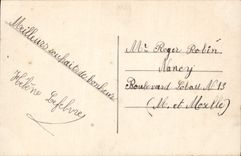 Meilleurs souhaits de bonheur
Hélène Lefebvre
Mr Roger Robin
Nancy
Boulevard Lobau N° 13
(M. et Moselle)